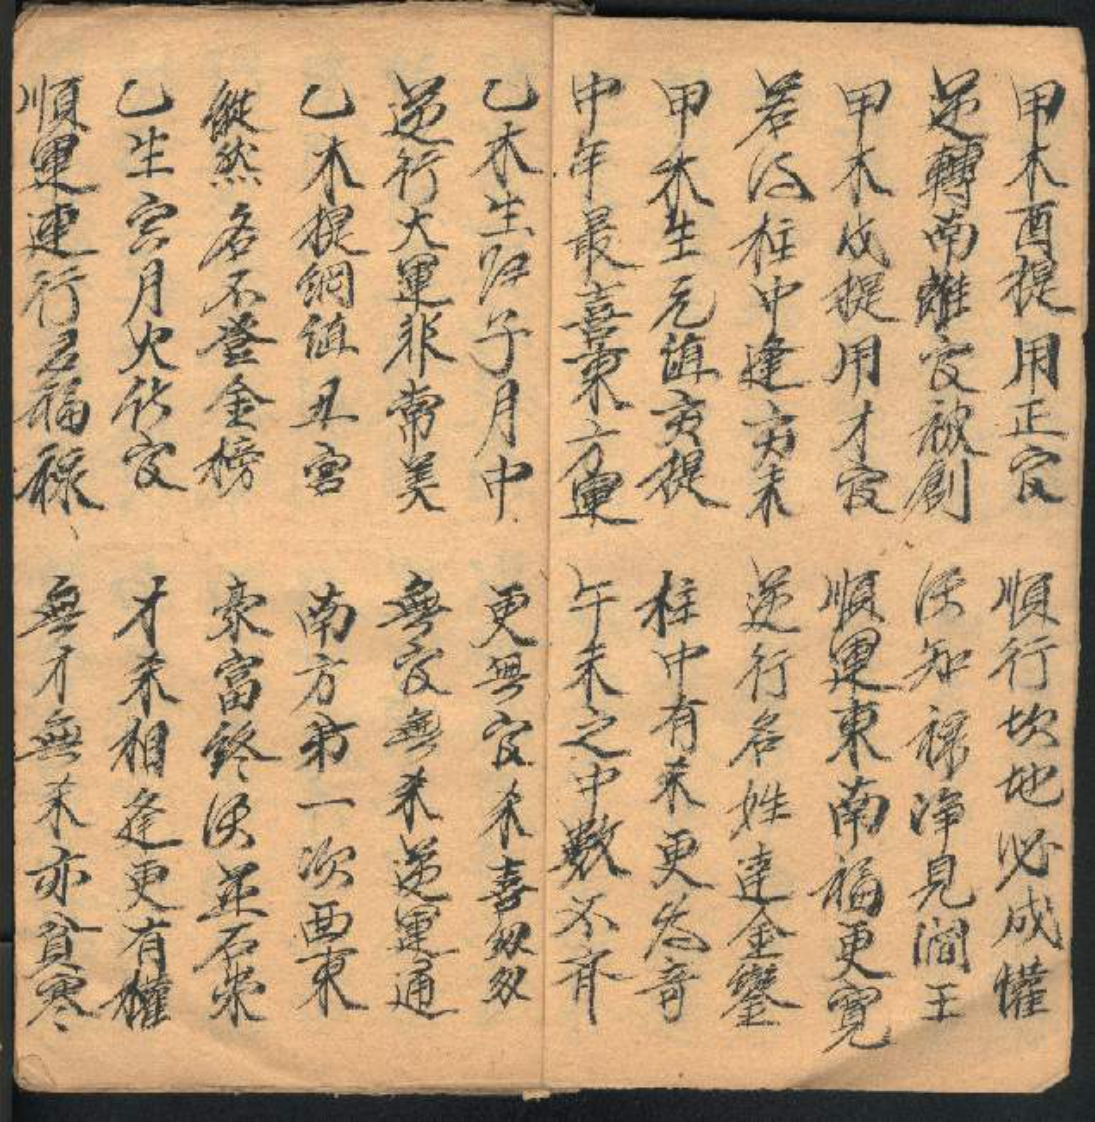 甲木酉提用正官 順行坎地必成懽
逆轉南離官被創 须知禄淨見閻王
甲木戌提用才官 順運東南福更寬
若得柱中逢亥未 逆行名姓達金鑾
甲木生元值亥提 柱中有未更为奇
中年最喜東方運 午未之中數不齊
乙木生归子月中 更無官杀喜
逆行大運非常美 無官無杀逆運通
乙木提綱值丑宮 南方第一次西東
縱然名不登金榜 豪富終须並石崇
乙生寅月火傷官 才杀相逢更有權
順運連行君福禄 無才無杀亦貧寒